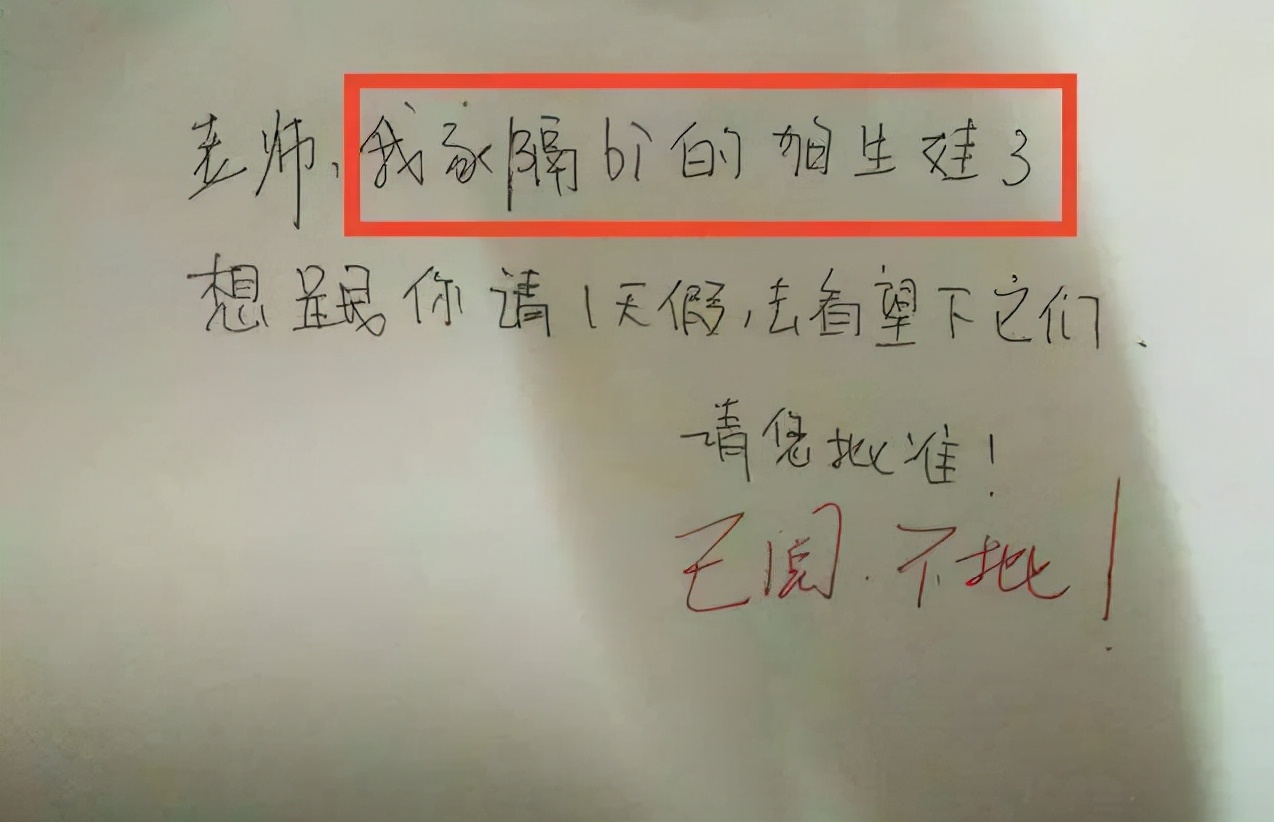 老师,我家隔bi的狗生娃了
想跟你请1天假,去看望下它们.
请您批准!
已阅.不批!